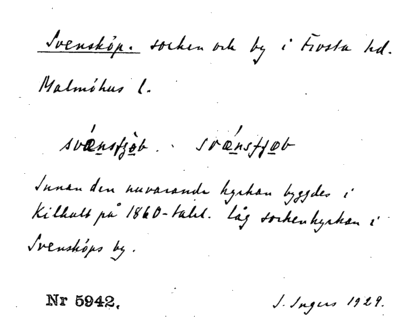 Svensköp. socken och by i Frosta hd.
Malmöhus l.
svánsfjǫb. svǽnsfjǫb
Innan den nuvarande kyrkan byggdes i
Kilhult på 1860-talet. låg sockenkyrkan i
Svensköps by.
Nr 5942. I. Ingers 1929.